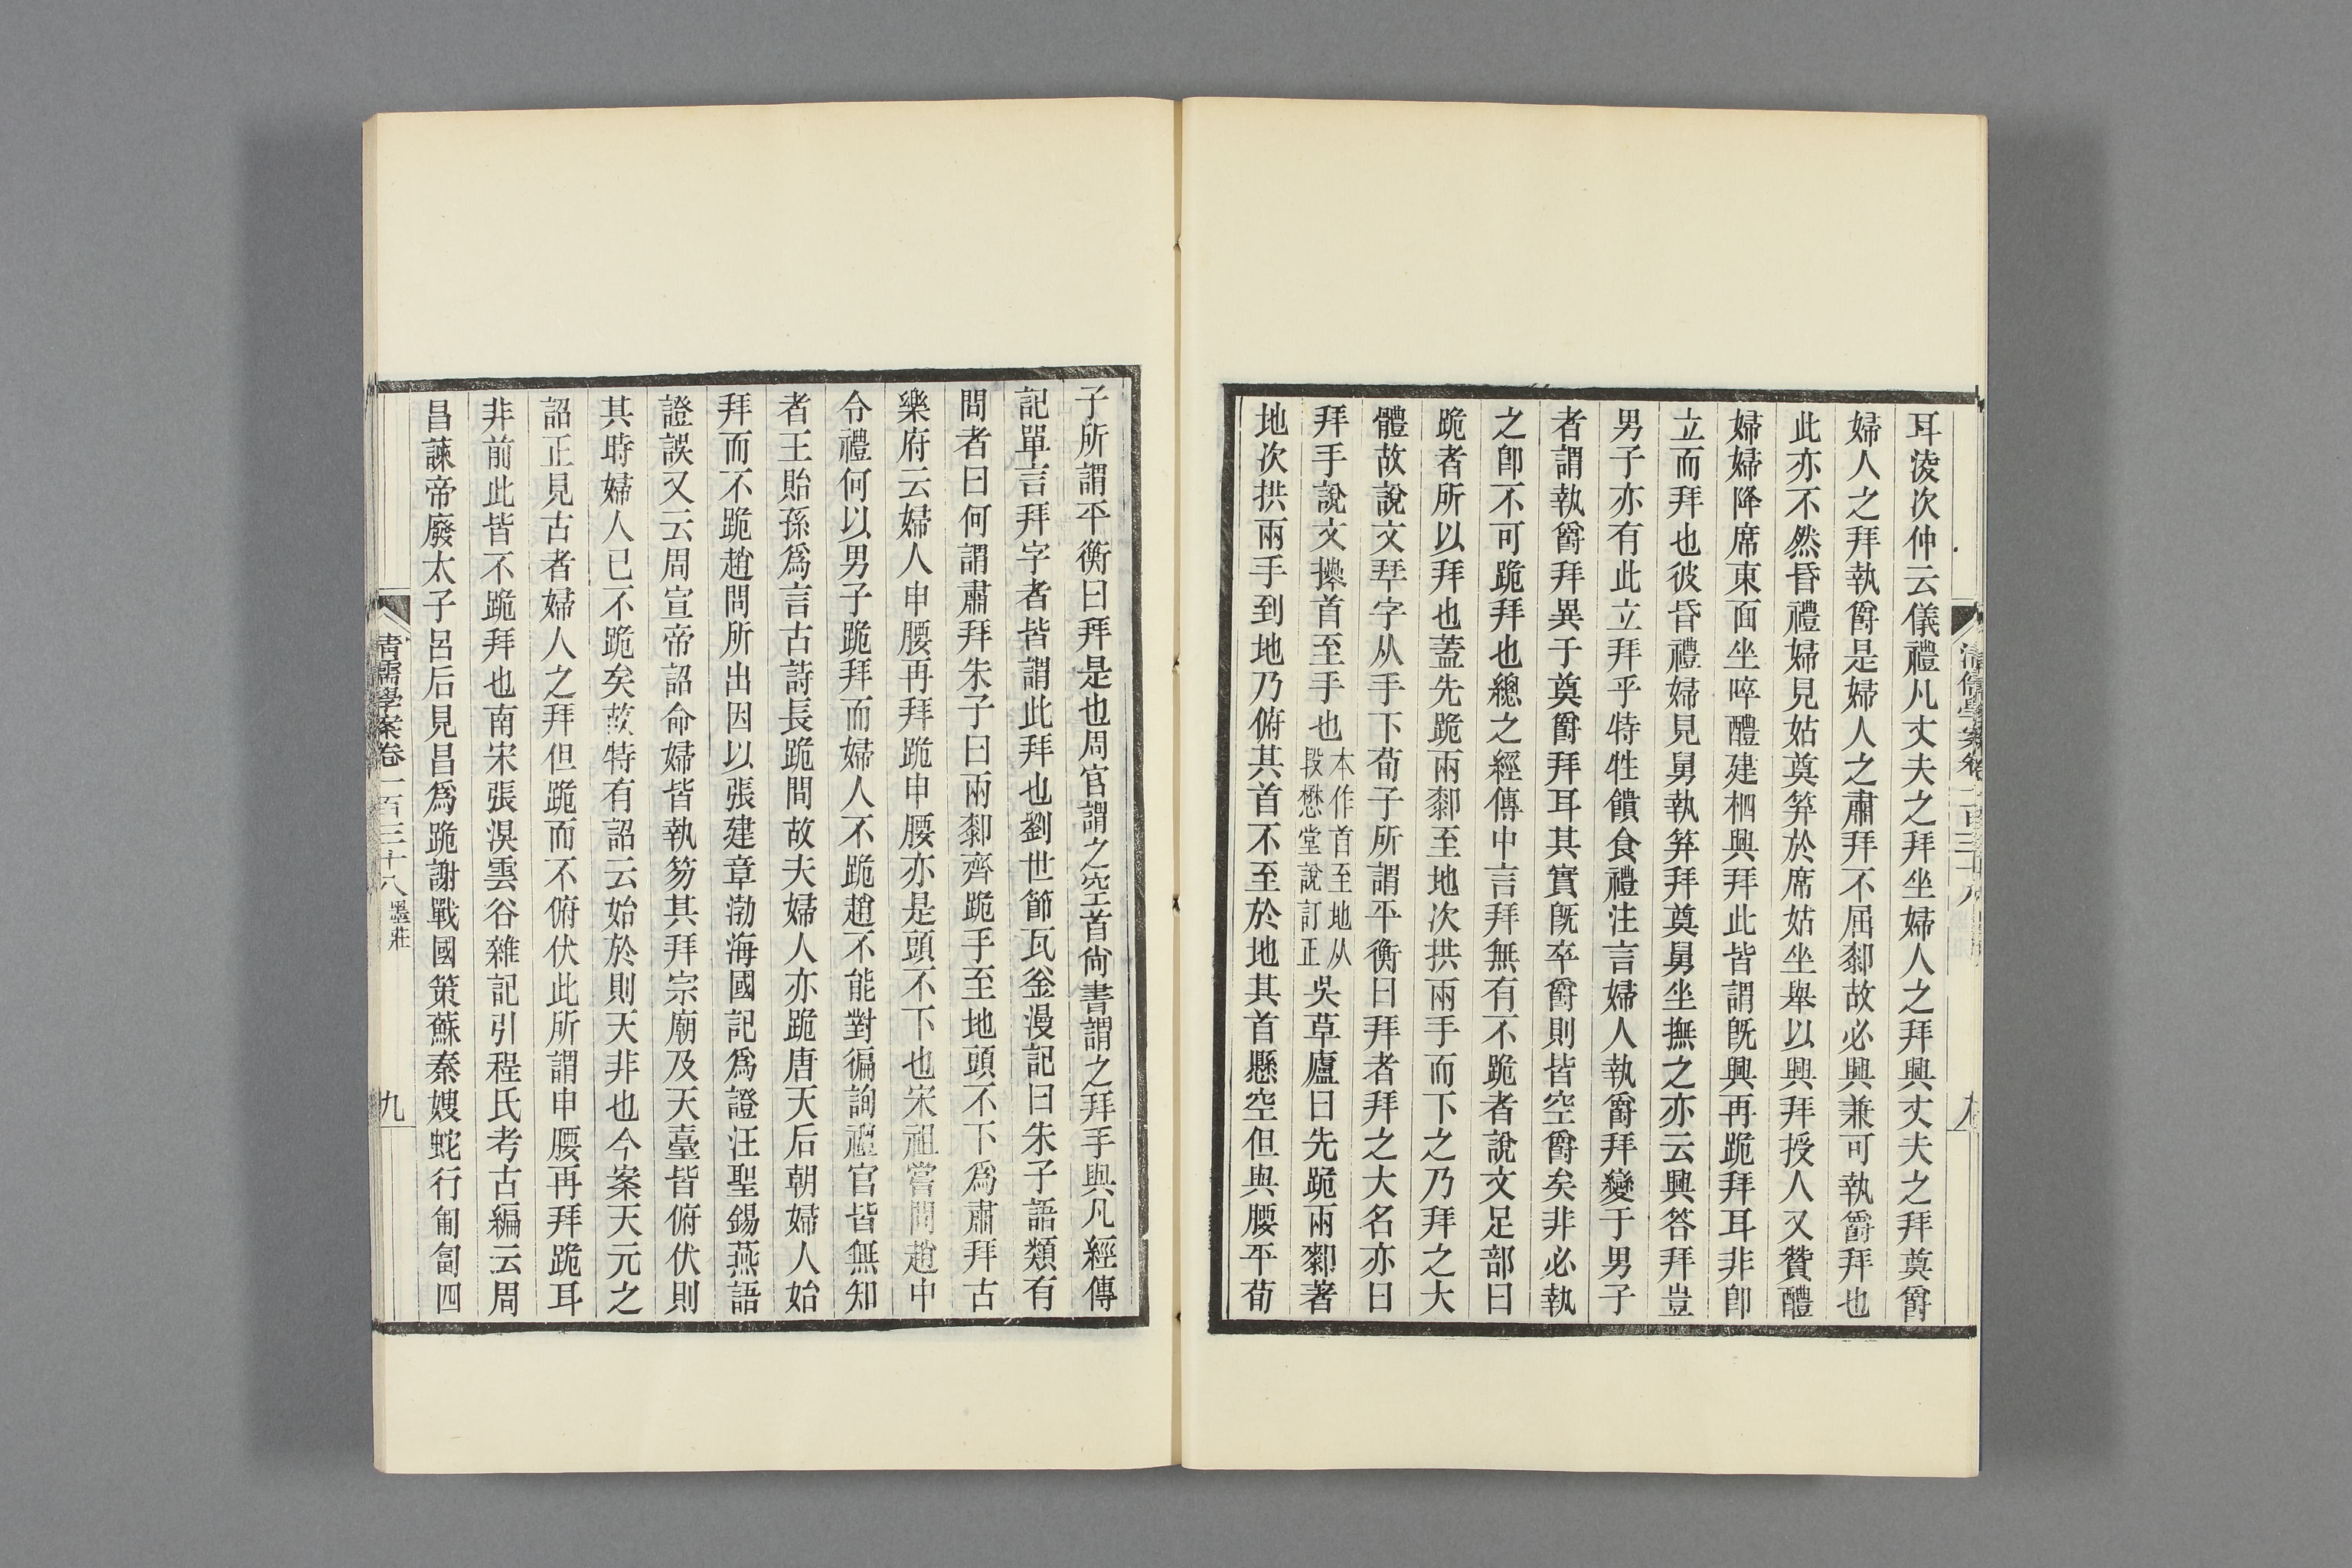 耳淩次仲云儀禮凡丈夫之拜坐婦人之拜興丈夫之拜奠爵
婦人之拜執爵是婦人之肅拜不屈䣛故必興兼可執爵拜也
此亦不然昏禮婦見姑奠笲於席姑坐舉以興拜授人又贊醴
婦婦降席東面坐啐醴建柶興拜此皆謂旣興再跪拜耳非卽
立而拜也彼昏禮婦見舅執笲拜奠舅坐撫之亦云興答拜豈
男子亦有此立拜乎特牲饋食禮注言婦人執爵拜變于男子
者謂執爵拜異于奠爵拜耳其實旣卒爵則皆空爵矣非必執
之卽不可跪拜也總之經傳中言拜無有不跪者說文足部曰
跪者所以拜也蓋先跪兩䣛至地次拱兩手而下之乃拜之大
體故說文𢫶字从手下荀子所謂平衡曰拜者拜之大名亦曰
拜手說文㩲首至手也本作首至地从段懋堂說訂正吳草廬曰先跪兩䣛著
地次拱兩手到地乃俯其首不至於地其首懸空但與腰平荀
清儒學案卷二百三十八
子所謂平衡曰拜是也周官謂之空首尙書謂之拜手與凡經傳
記單言拜字者皆謂此拜也劉世節瓦釜漫記曰朱子語類有
問者曰何謂肅拜朱子曰兩䣛齊跪手至地頭不下爲肅拜古
樂府云婦人申腰再拜跪申腰亦是頭不下也宋祖嘗問趙中
令禮何以男子跪拜而婦人不跪趙不能對徧詢禮官皆無知
者王貽孫爲言古詩長跪問故夫婦人亦跪唐天后朝婦人始
拜而不跪趙問所出因以張建章渤海國記爲證汪聖錫燕語
證誤又云周宣帝詔命婦皆執笏其拜宗廟及天臺皆俯伏則
其時婦人已不跪矣故特有詔云始於則天非也今案天元之
詔正見古者婦人之拜但跪而不俯伏此所謂申腰再拜跪耳
非前此皆不跪拜也南宋張淏雲谷雜記引程氏考古編云周
昌諫帝廢太子呂后見昌爲跪謝戰國策蘇秦嫂蛇行匍匐四
清儒學案卷一百三十八 墨莊
九